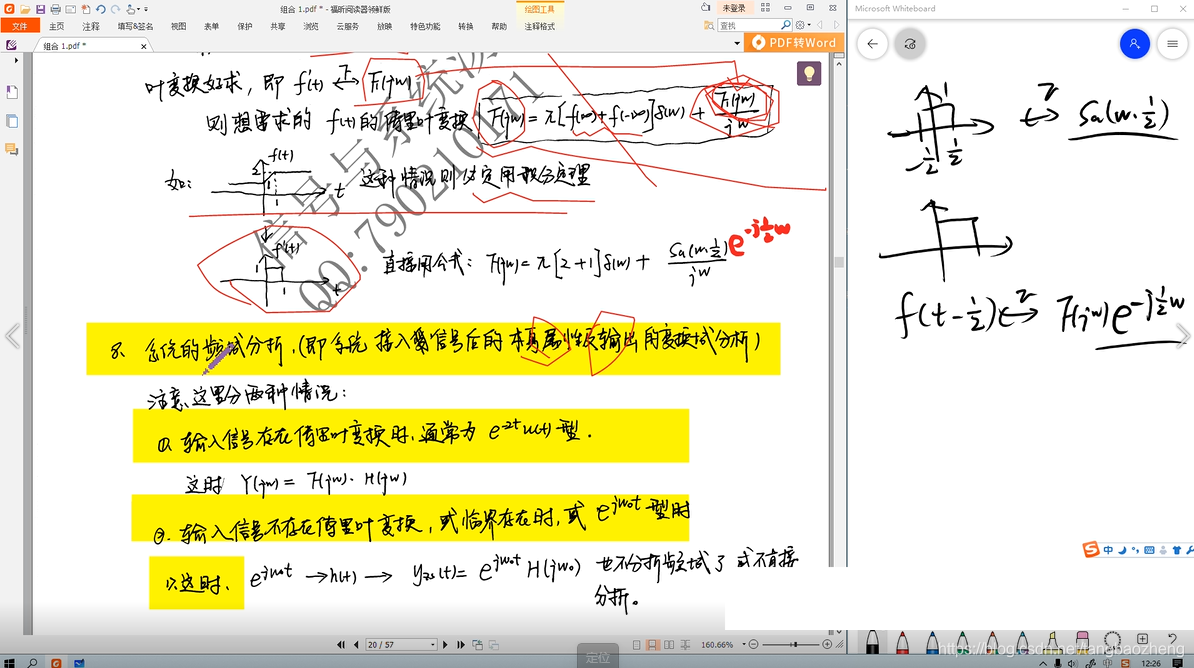 组合 1.pdf * - 福昕阅读器领鲜版
绘图工具
未登录
文件 主页 注释 填写&签名 视图 表单 保护 共享 浏览 云服务 放映 特色功能 转换 帮助 新建 注释格式
查找
组合 1.pdf *
PDF转Word
叶变换好求，即 f'(t) ↔ F₁(jw)
则想需求的 f(t)的傅里叶变换 F(jw)= π[f(∞)+f(-∞)]δ(w) + F₁(jw)/jw
如: f(t) 2 1 1 t 这种情况则必定用积分定理
f'(t) 1 1 t 直接用公式: F(jw)= π[2+1]δ(w) + Sa(w·½)/jw e^{-j½w}
信号与系统
QQ: 79021
8. 系统的频域分析.(即系统接入信号后的本身属性及输出的变换域分析)
注意、这里分两种情况:
①. 输入信号存在傅里叶变换时, 通常为 e^{-2t}u(t)型.
这时 Y(jw)= F(jw)· H(jw)
②. 输入信号不存在傅里叶变换, 或临界存在时, 或 e^{jw₀t}型时
1>这时、 e^{jw₀t} →h(t)→ y_{zs}(t)= e^{jw₀t} H(jw₀) 也不分析频域了 或不直接
分析。
20 / 57
160.66%
定位
Microsoft Whiteboard
1 -½ ½ ↔ Sa(w·½)
f(t-½) ↔ F(jw)e^{-j½w}
中
https://blog.csdn.net/langbaozheng
12:26